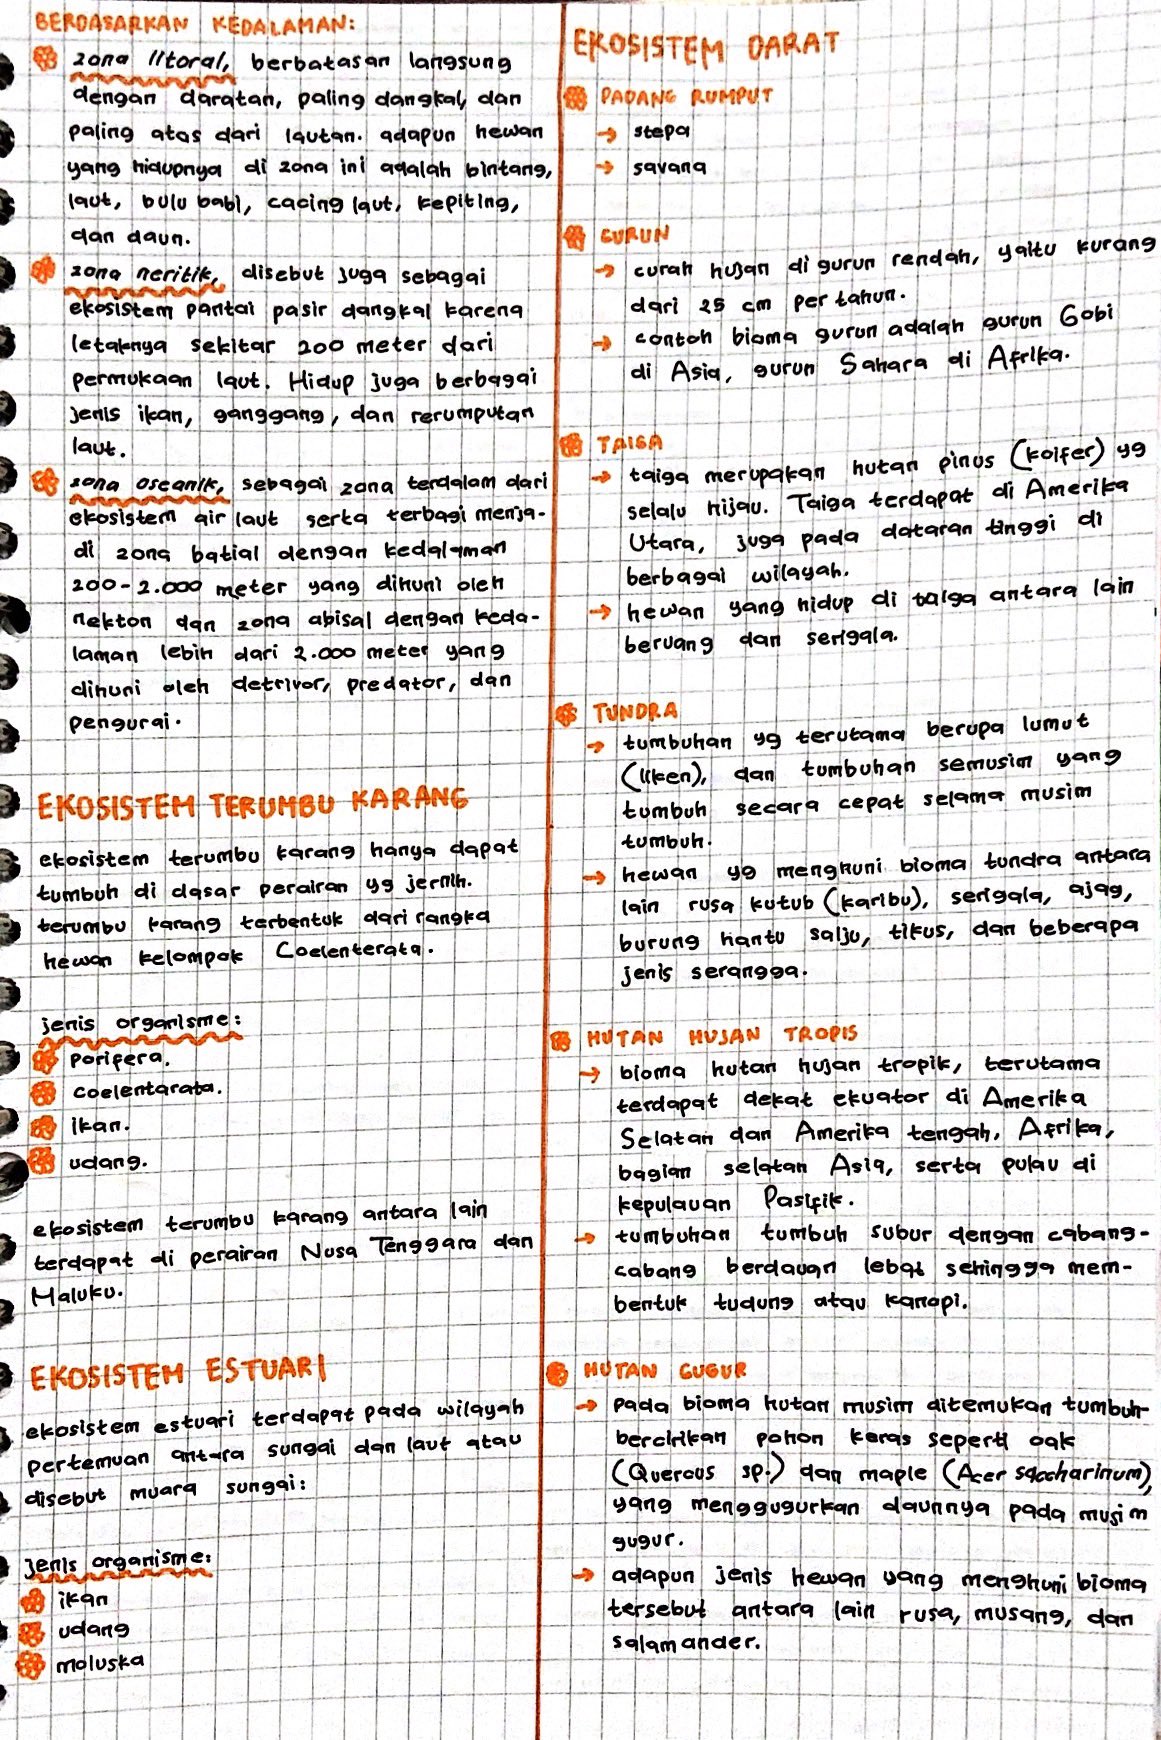 BERDASARKAN KEDALAMAN:
zona litoral, berbatasan langsung
dengan daratan, paling dangkal, dan
paling atas dari lautan. adapun hewan
yang hidupnya di zona ini adalah bintang,
laut, bulu babi, cacing laut, kepiting,
dan daun.
zona neritik, disebut juga sebagai
ekosistem pantai pasir dangkal karena
letaknya sekitar 200 meter dari
permukaan laut. Hidup juga berbagai
jenis ikan, ganggang, dan rerumputan
laut.
zona oseanik, sebagai zona terdalam dari
ekosistem air laut serta terbagi menja-
di zona batial dengan kedalaman
200-2.000 meter yang dihuni oleh
nekton dan zona abisal dengan keda-
laman lebih dari 2.000 meter yang
dihuni oleh detrivor, predator, dan
pengurai.
EKOSISTEM TERUMBU KARANG
ekosistem terumbu karang hanya dapat
tumbuh di dasar perairan yg jernih.
terumbu karang terbentuk dari rangka
hewan kelompok Coelenterata.
jenis organisme:
porifera.
coelentarata.
ikan.
udang.
ekosistem terumbu karang antara lain
terdapat di perairan Nusa Tenggara dan
Maluku.
EKOSISTEM ESTUARI
ekosistem estuari terdapat pada wilayah
pertemuan antara sungai dan laut atau
disebut muara sungai:
jenis organisme:
ikan
udang
moluska
EKOSISTEM DARAT
PADANG RUMPUT
→ stepa
→ savana
GURUN
→ curah hujan di gurun rendah, yaitu kurang
dari 25 cm per tahun.
→ contoh bioma gurun adalah gurun Gobi
di Asia, gurun Sahara di Afrika.
TAIGA
→ taiga merupakan hutan pinus (koifer) yg
selalu hijau. Taiga terdapat di Amerika
Utara, juga pada dataran tinggi di
berbagai wilayah.
→ hewan yang hidup di taiga antara lain
beruang dan serigala.
TUNDRA
→ tumbuhan yg terutama berupa lumut
(liken), dan tumbuhan semusim yang
tumbuh secara cepat selama musim
tumbuh.
→ hewan yg menghuni bioma tundra antara
lain rusa kutub (karibu), serigala, ajag,
burung hantu salju, tikus, dan beberapa
jenis serangga.
HUTAN HUJAN TROPIS
→ bioma hutan hujan tropik, terutama
terdapat dekat ekuator di Amerika
Selatan dan Amerika tengah, Afrika,
bagian selatan Asia, serta pulau di
kepulauan Pasifik.
→ tumbuhan tumbuh subur dengan cabang-
cabang berdauan lebat sehingga mem-
bentuk tudung atau kanopi.
HUTAN GUGUR
→ pada bioma hutan musim ditemukan tumbuh-
bercirikan pohon keras seperti oak
(Quercus sp.) dan maple (Acer saccharinum),
yang menggugurkan daunnya pada musim
gugur.
→ adapun jenis hewan yang menghuni bioma
tersebut antara lain rusa, musang, dan
salamander.